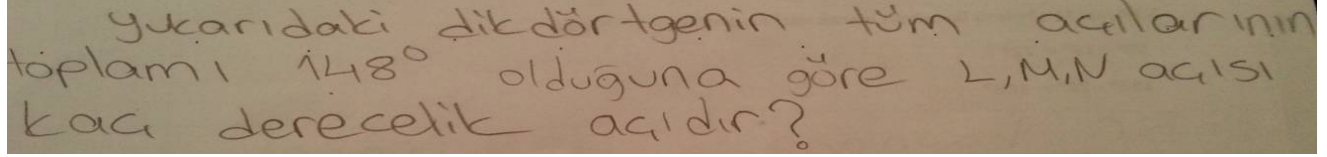 yukarıdaki dikdörtgenin tüm açılarının
toplamı 148° olduğuna göre L,M,N açısı
kaç derecelik açıdır?